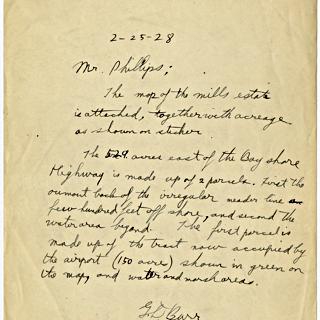 2-25-28
Mr. Phillips;
The map of the mills estate
is attached, together with acreage
as shown on sticker.
The 529 acres east of the Bay shore
Highway is made up of 2 parcels. First the
amount back of the irregular meader line
few hundred feet off shore, and second the
water area beyond. The first parcel is
made up of the tract now occupied by
the airport (150 acres) shown in green on
the map, and water and marsh areas.
G D Carr